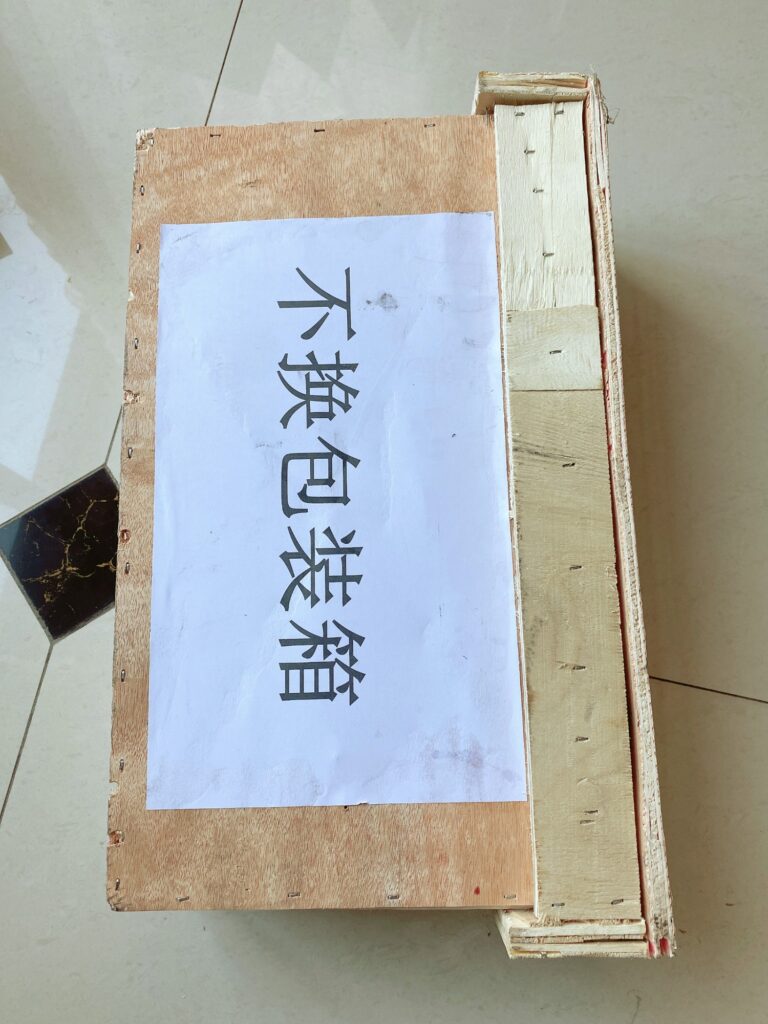 不换包装箱